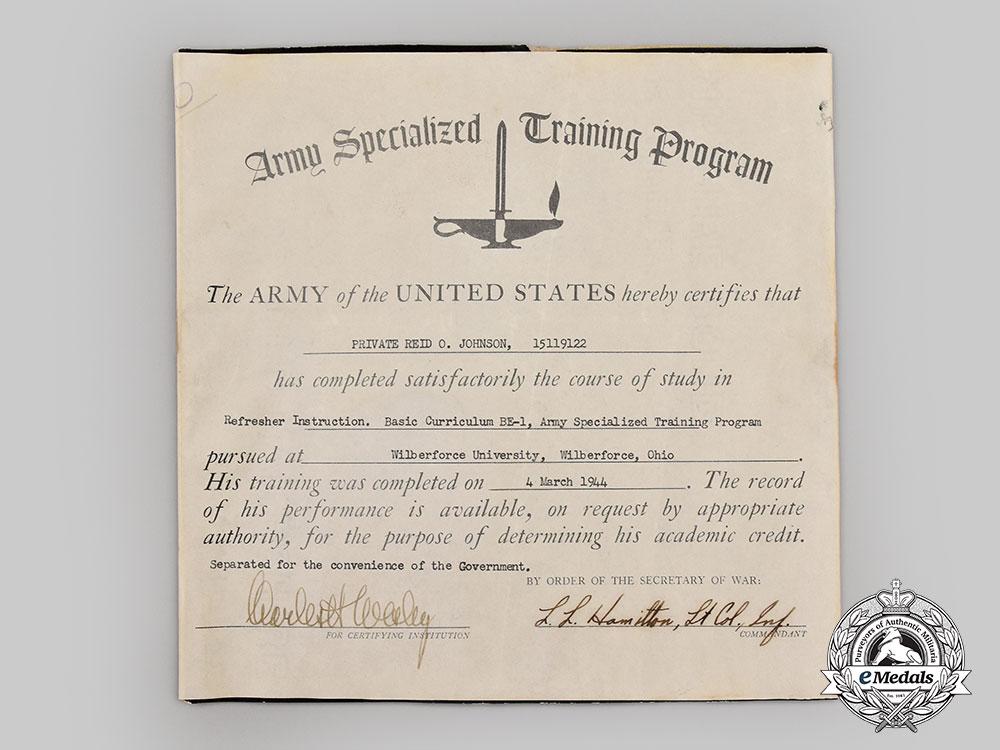 Army Specialized Training Program
The ARMY of the UNITED STATES hereby certifies that
PRIVATE REID O. JOHNSON, 15119122
has completed satisfactorily the course of study in
Refresher Instruction. Basic Curriculum BE-1, Army Specialized Training Program
pursued at Wilberforce University, Wilberforce, Ohio.
His training was completed on 4 March 1944. The record
of his performance is available, on request by appropriate
authority, for the purpose of determining his academic credit.
Separated for the convenience of the Government.
BY ORDER OF THE SECRETARY OF WAR:
L. L. Hamilton, Lt Col, Inf.
FOR CERTIFYING INSTITUTION
COMMANDANT
Purveyors of Authentic Militaria
eMedals